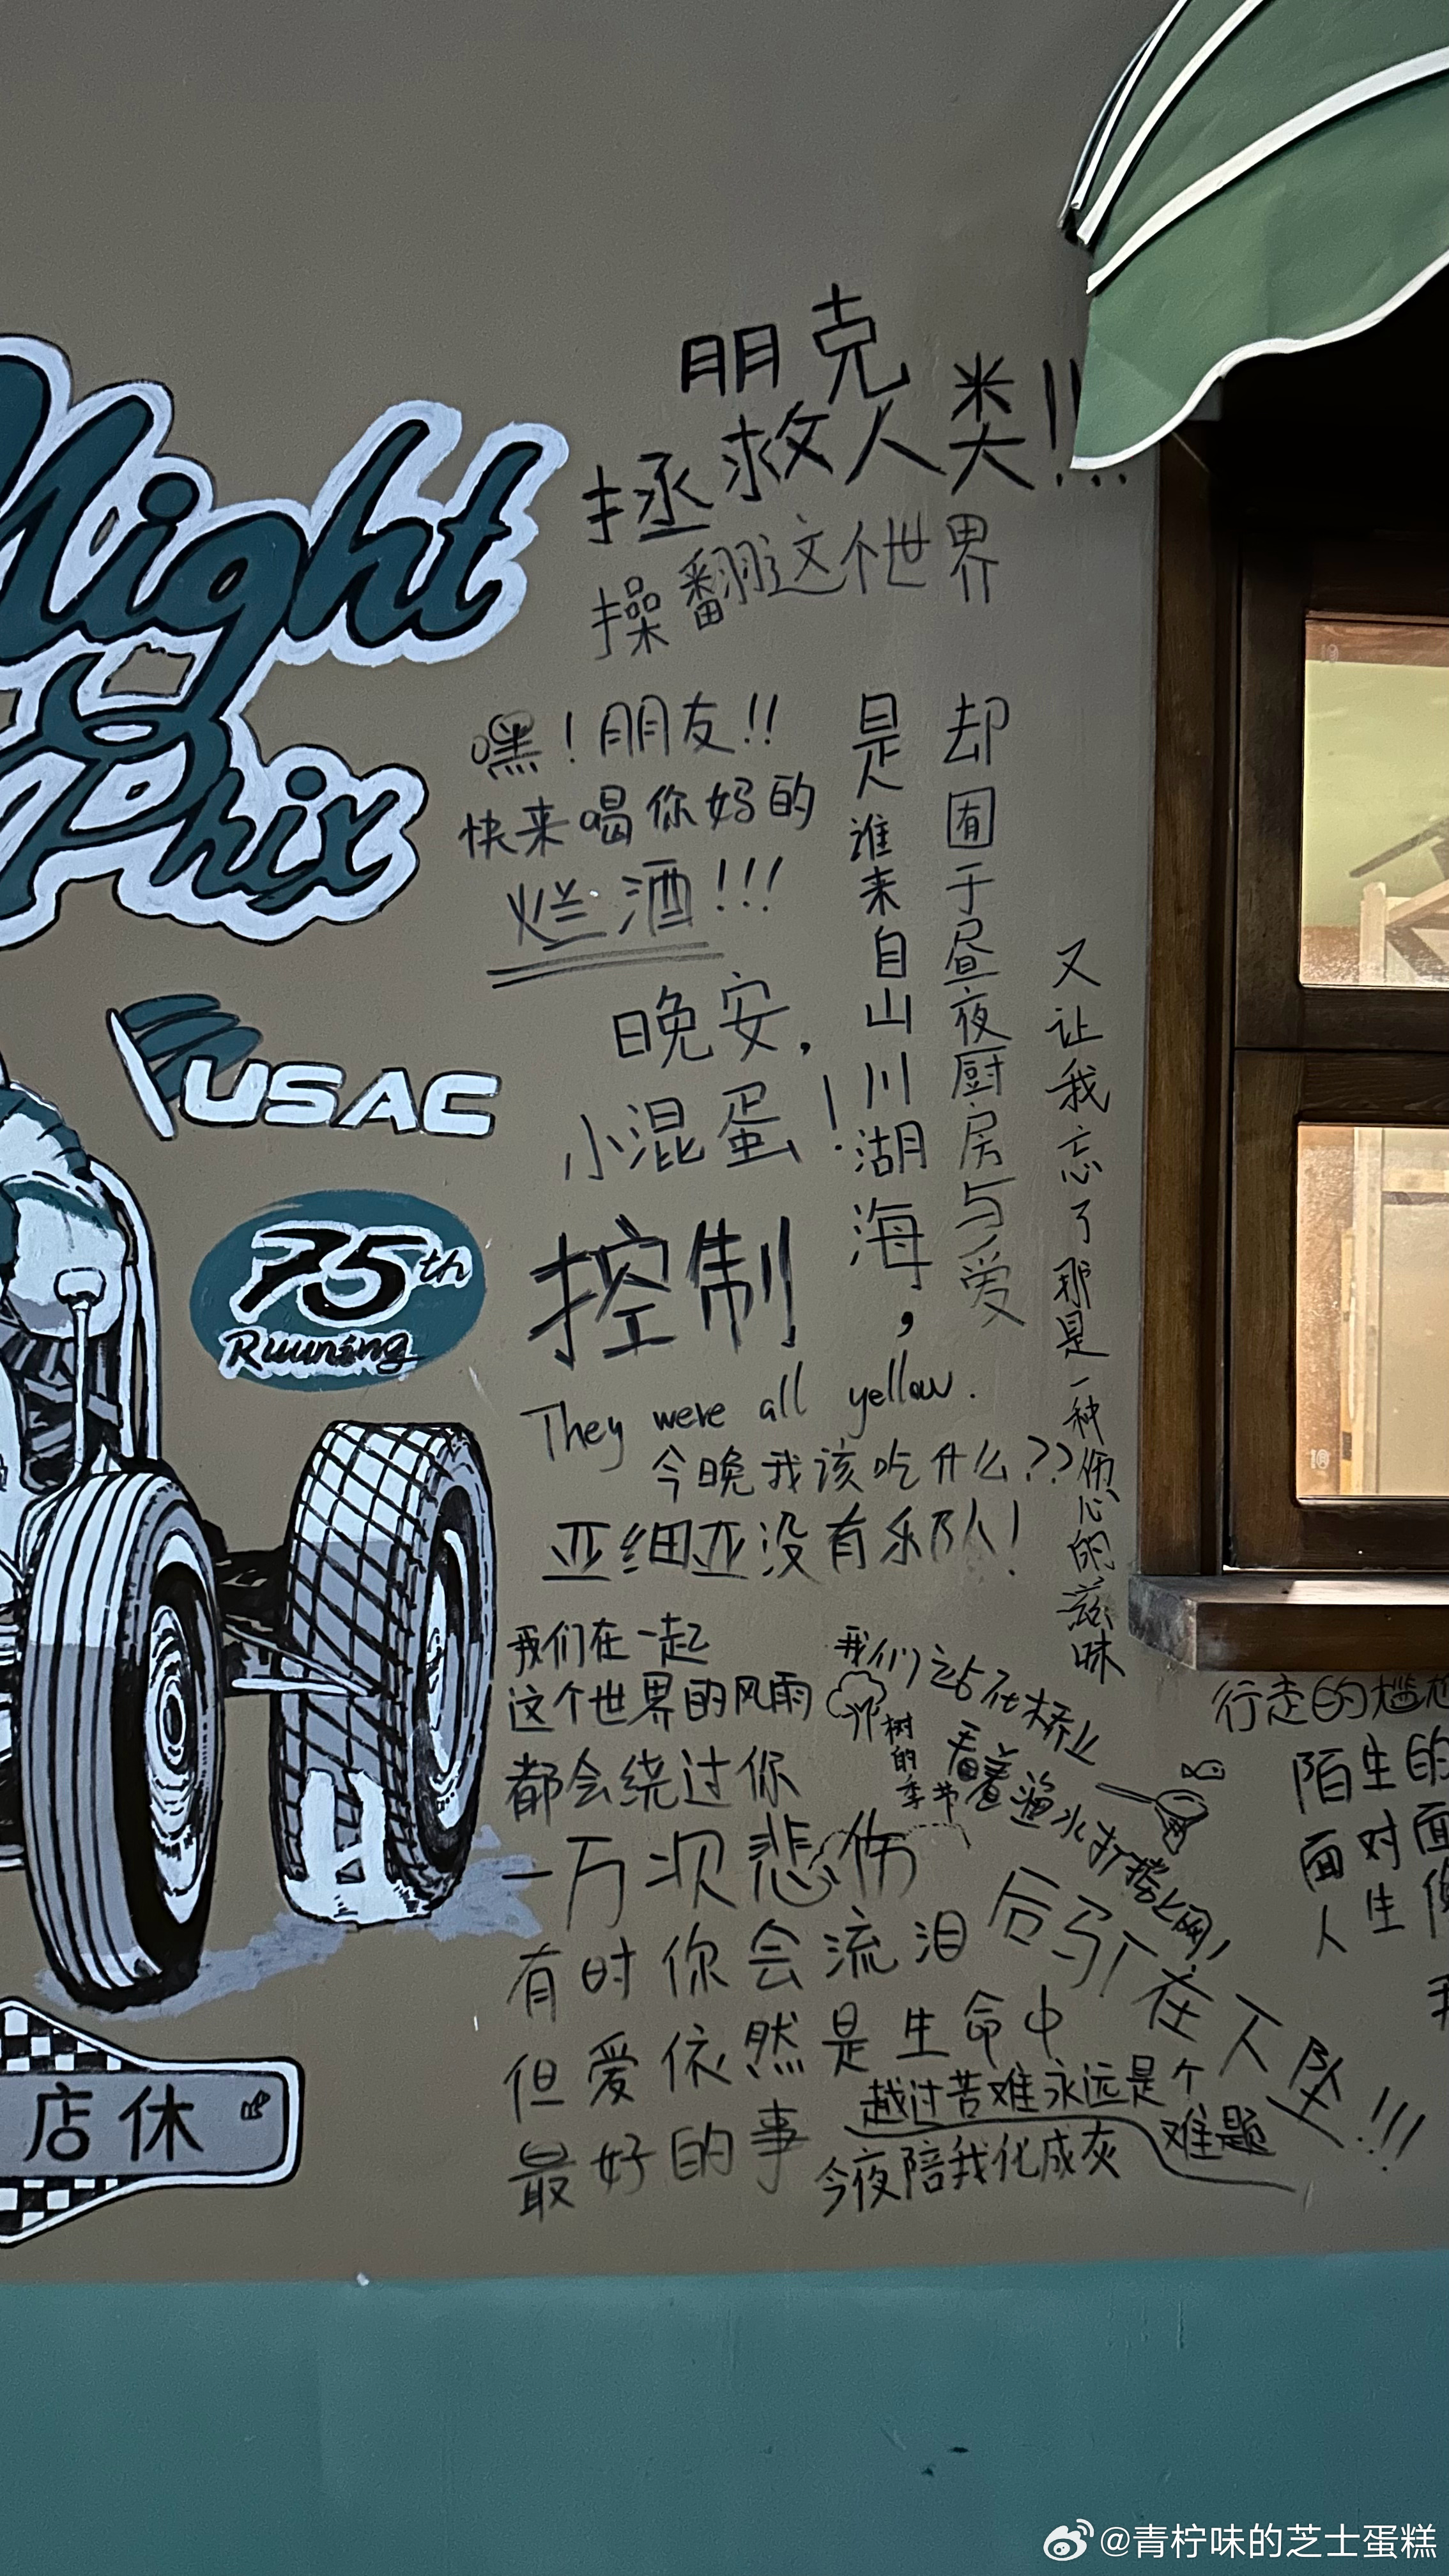 Night
Phix
USAC
75th
Ruuning
店休
朋克
拯救人类!!...
操翻这个世界
嘿！朋友!!
快来喝你妈的
烂酒!!!
晚安，
小混蛋！
是谁来自山川湖海，
却囿于昼夜厨房与爱
又让我忘了那是一种伤心的滋味
控制
They were all yellow.
今晚我该吃什么??
亚细亚没有乐队!
我们在一起
这个世界的风雨
都会绕过你
一万次悲伤
有时你会流泪
但爱依然是生命中
最好的事
我们站在桥上
看着
水打捞上网，
树的季节
后厂在下坠!!!
越过苦难永远是个
难题
今夜陪我化成灰
行走的尴
陌生的
面对面
人生
@青柠味的芝士蛋糕